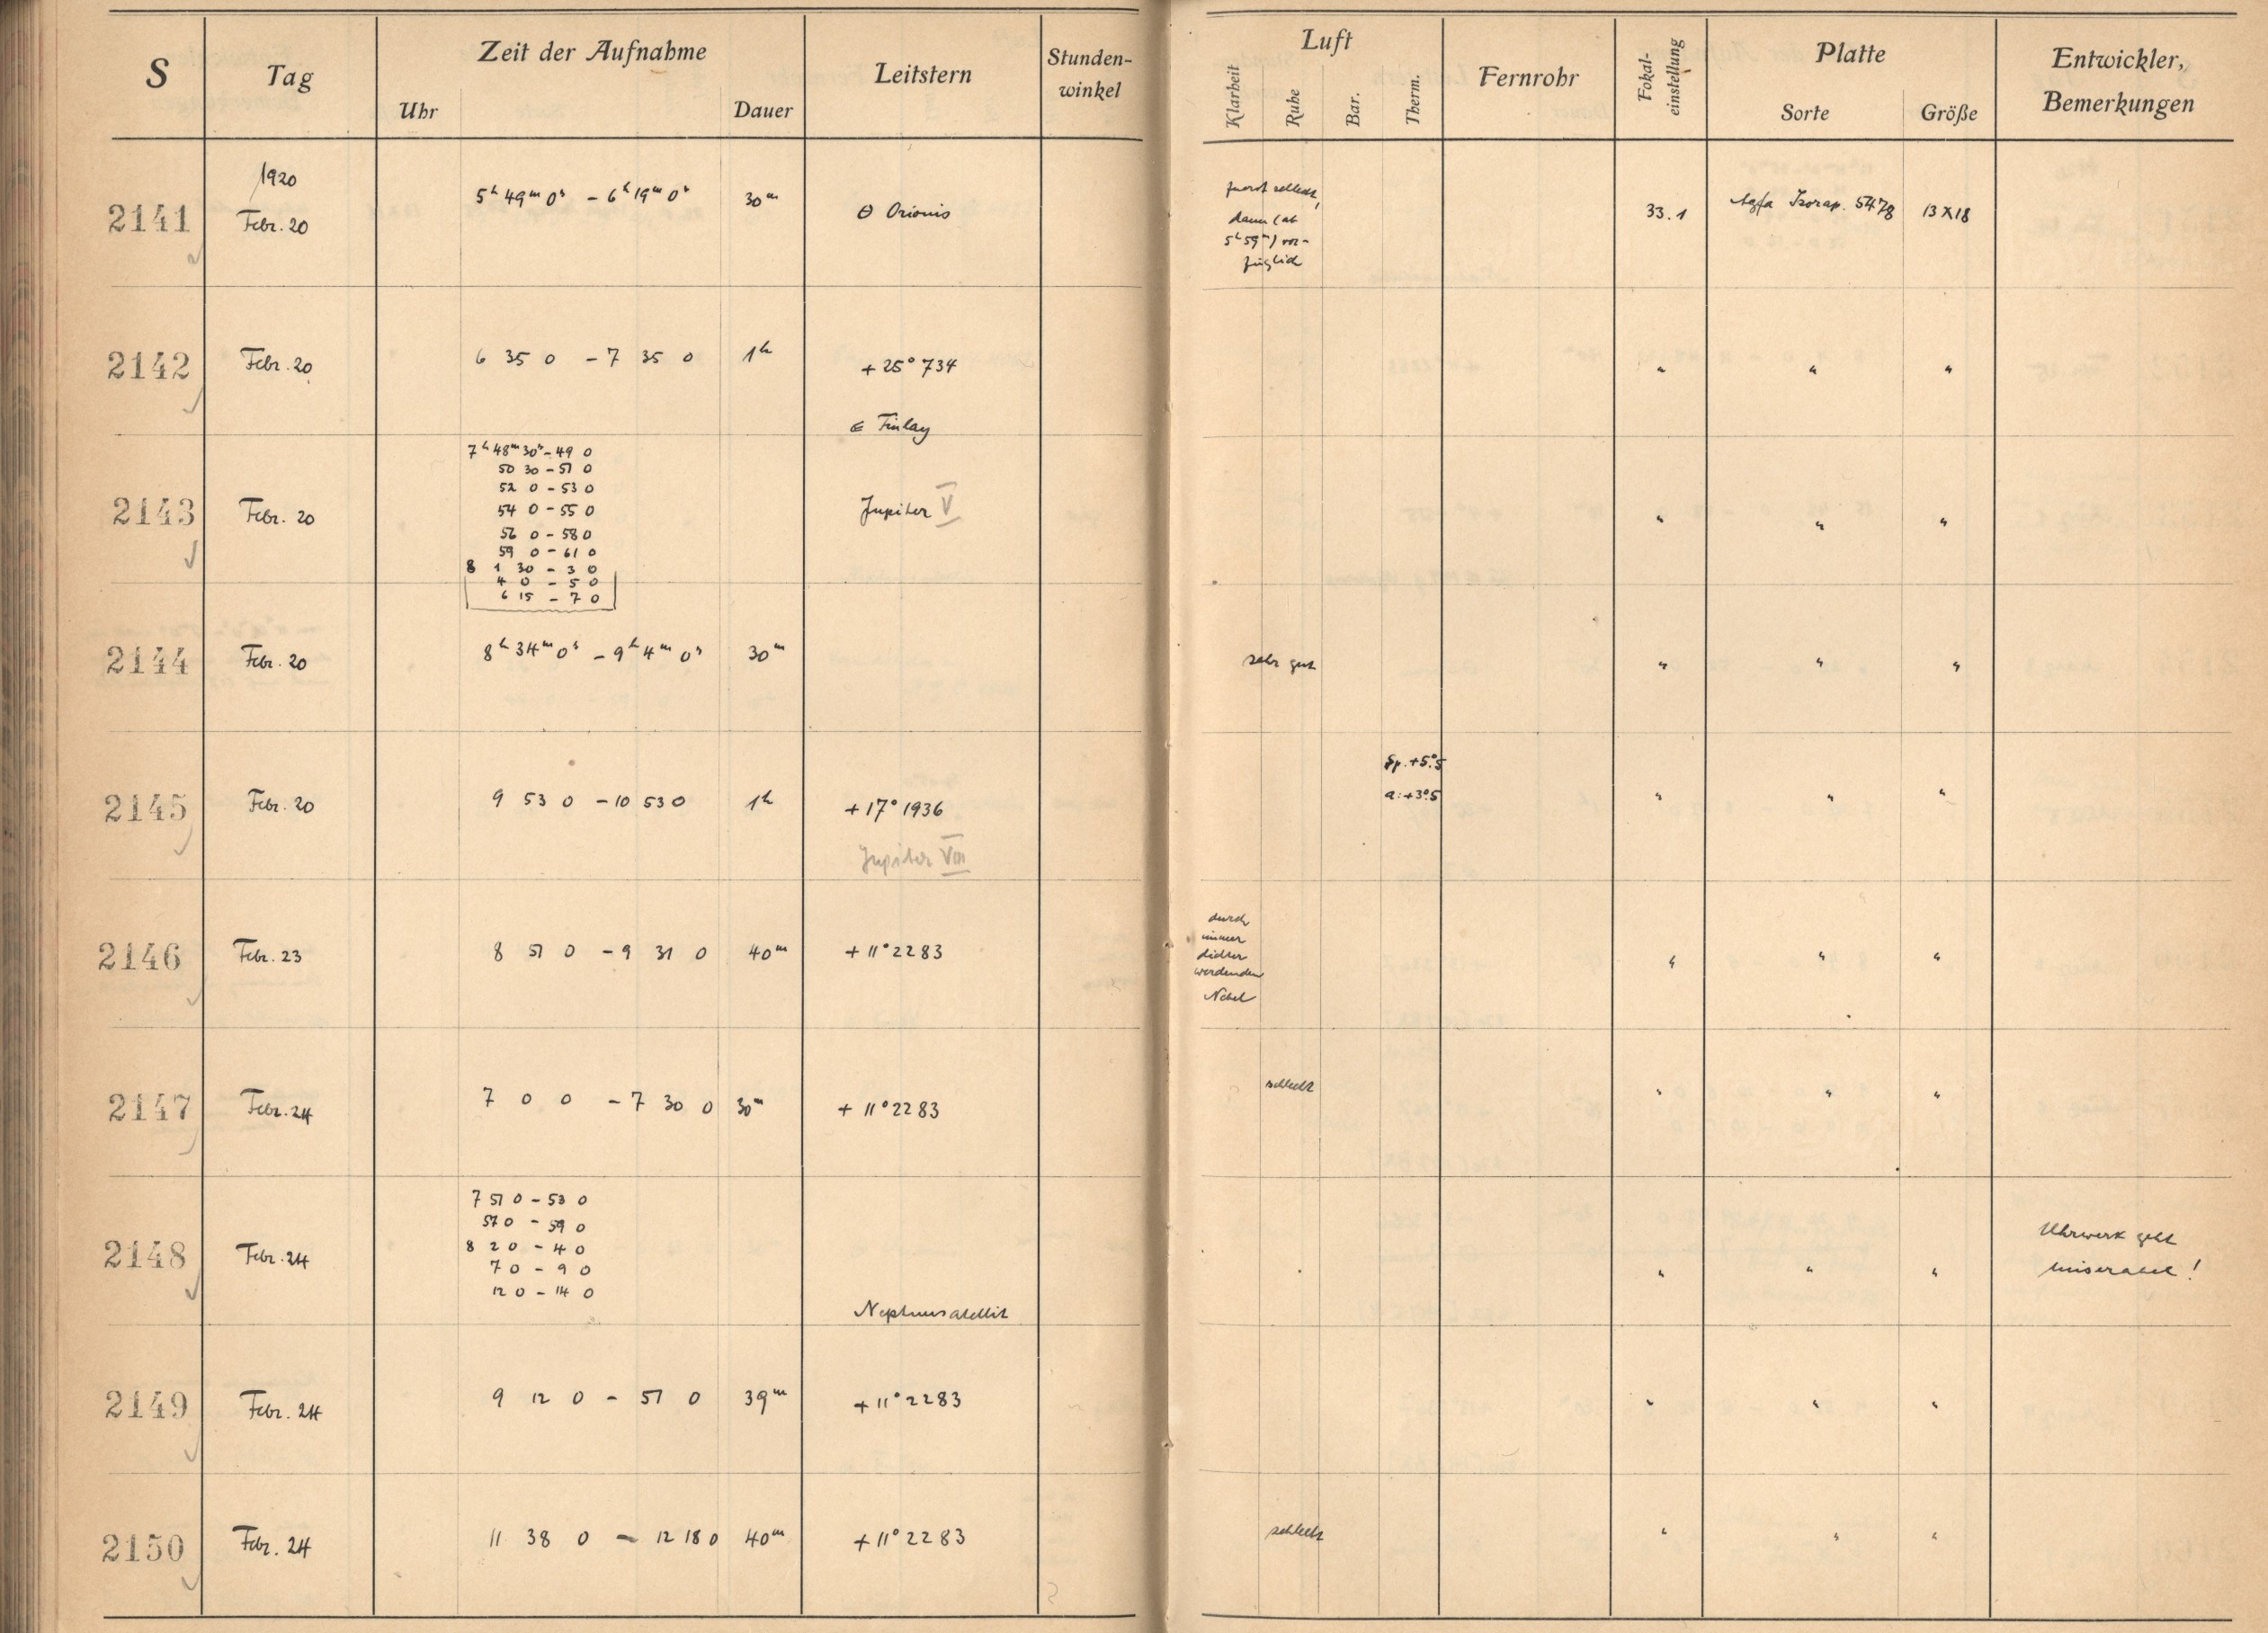 S Tag Zeit der Aufnahme Leitstern Stunden-winkel Luft Fernrohr Fokal-einstellung Platte Entwickler, Bemerkungen
Uhr Dauer Klarheit Ruhe Bar. Therm. Sorte Größe
1920
2141 Febr. 20 5ʰ 49ᵐ 0ˢ – 6ʰ 19ᵐ 0ˢ 30ᵐ Θ Orionis 33.1 Agfa Isorap. 5478 13 X 18
zuerst schlecht,
dann (ab
5ʰ 59ᵐ) vor-
züglich
2142 Febr. 20 6 35 0 – 7 35 0 1ʰ + 25° 734 " " "
Finlay
7ʰ 48ᵐ 30ˢ – 49 0
50 30 – 51 0
52 0 – 53 0
2143 Febr. 20 54 0 – 55 0 Jupiter V " " "
56 0 – 58 0
59 0 – 61 0
8 1 30 – 3 0
4 0 – 5 0
6 15 – 7 0
2144 Febr. 20 8ʰ 34ᵐ 0ˢ – 9ʰ 4ᵐ 0ˢ 30ᵐ sehr gut " " "
Sp. +5°.5
2145 Febr. 20 9 53 0 – 10 53 0 1ʰ + 17° 1936 a: +3°.5 " " "
Jupiter VIII
durch
immer
dichter
werdenden
Nebel
2146 Febr. 23 8 51 0 – 9 31 0 40ᵐ + 11° 2283 " " "
2147 Febr. 24 7 0 0 – 7 30 0 30ᵐ + 11° 2283 schlecht " " "
7 51 0 – 53 0
57 0 – 59 0
2148 Febr. 24 8 2 0 – 4 0 " " " Uhrwerk geht
7 0 – 9 0 miserabel!
12 0 – 14 0
Neptunsatellit
2149 Febr. 24 9 12 0 – 51 0 39ᵐ + 11° 2283 " " "
2150 Febr. 24 11 38 0 – 12 18 0 40ᵐ + 11° 2283 schlecht " " "